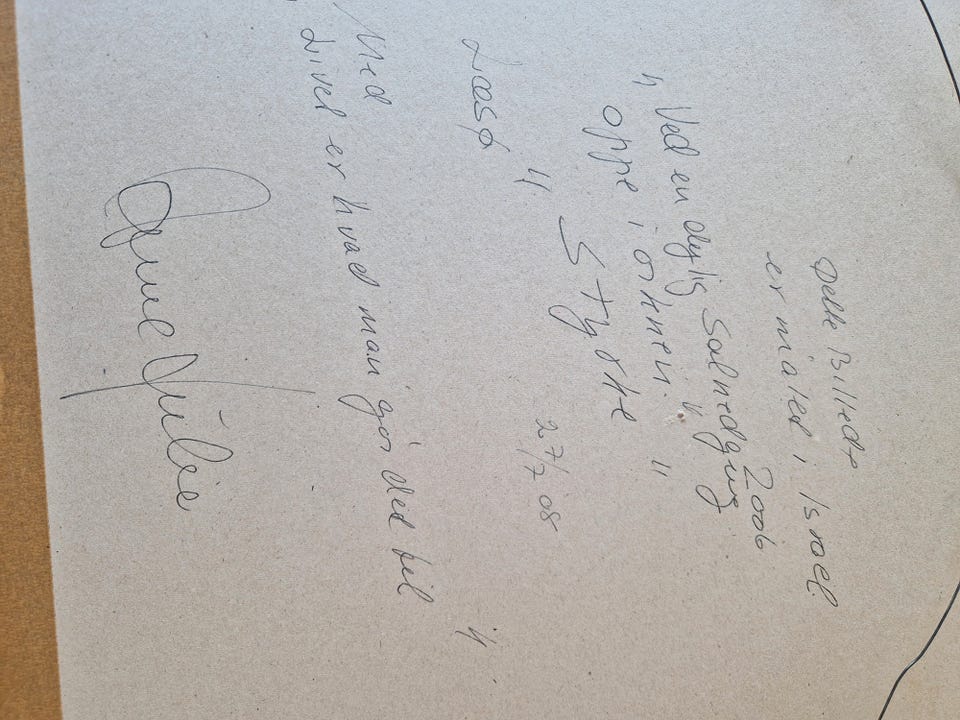 Dette Billede
er malet i Israel.
2006
" Ved en dejlig Solnedgang
oppe i ørknen. "
" Styrke "
Læsø 27/7 08
Med
Livet er hvad man gør det til "